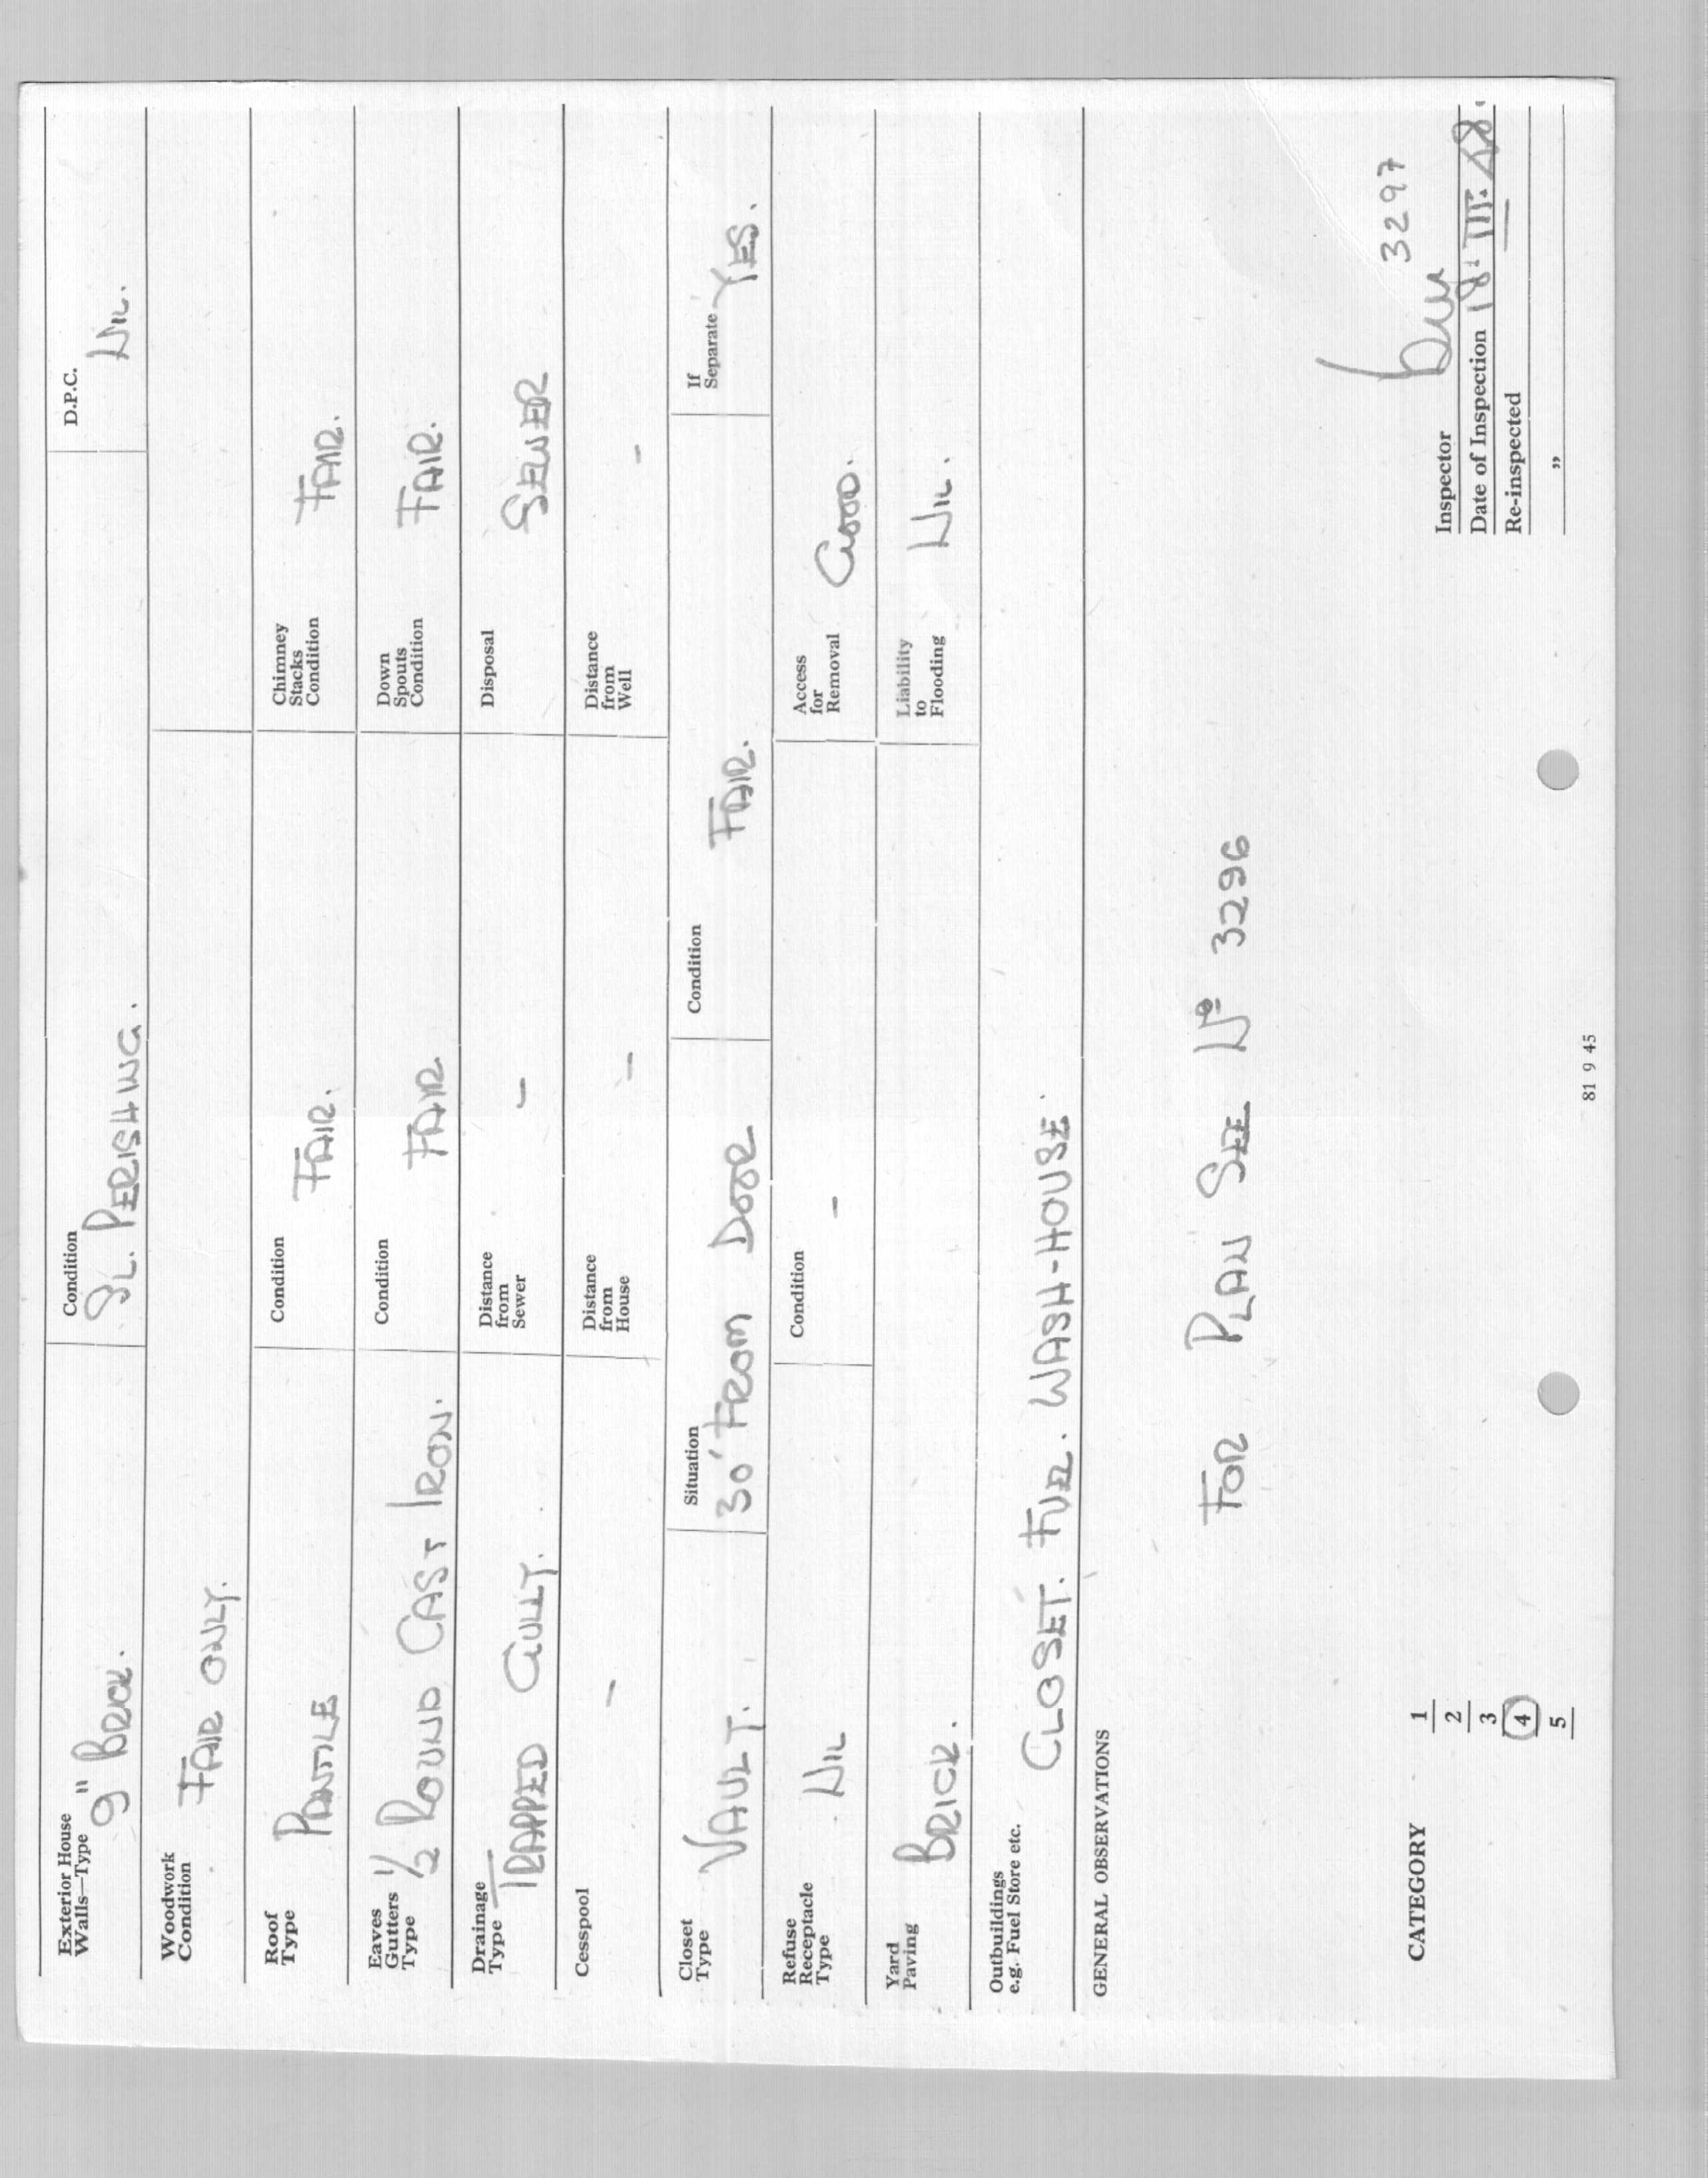 Exterior House Walls—Type 9" BRICK. Condition SL. PERISHING. D.P.C. NIL.
Woodwork Condition FAIR ONLY.
Roof Type PANTILE Condition FAIR. Chimney Stacks Condition FAIR.
Eaves Gutters Type ½ ROUND CAST IRON. Condition FAIR Down Spouts Condition FAIR.
Drainage Type TRAPPED GULLY. Distance from Sewer - Disposal SEWER
Cesspool - Distance from House - Distance from Well -
Closet Type VAULT. Situation 30' FROM DOOR Condition FAIR. If Separate YES.
Refuse Receptacle Type NIL Condition - Access for Removal GOOD.
Yard Paving BRICK. Liability to Flooding NIL.
Outbuildings e.g. Fuel Store etc. CLOSET. FUEL. WASH-HOUSE.
GENERAL OBSERVATIONS
FOR PLAN SEE No 3296
3297
CATEGORY 1
2
3
4
5
Inspector
Date of Inspection 18. III. 48.
Re-inspected
"
81 9 45